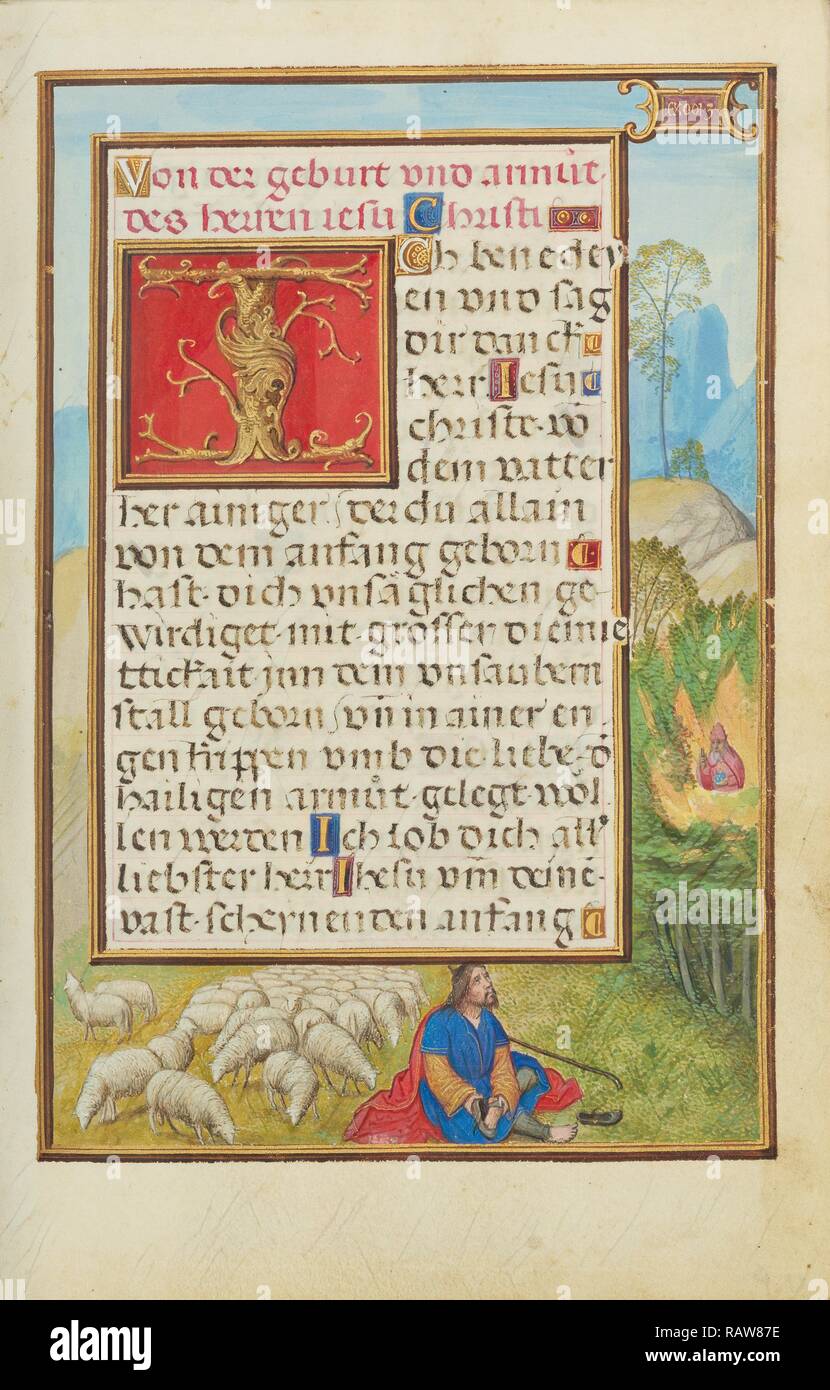 EXODI·3
Von der geburt vnd armůt·
des herren iesu Christi
Ich benedey
en vnd sag
dir danck
herr Iesu
christe· vō
dem vatter
her ainiger / der du allain
von dem anfang geborn
hast· dich vnsäglichen ge
wirdiget· mit· grosser diemie
ttickait jnn dem vnsaubern
stall geborn / vn̄ in ainer en
gen krippen vmb die liebe· d̄
hailigen armůt· gelegt· wöl
len werden Ich lob dich all'
liebster herr Ihesu vm̄ deinē·
vast· scheynenden anfang
alamy
Image ID: RAW87E
www.alamy.com